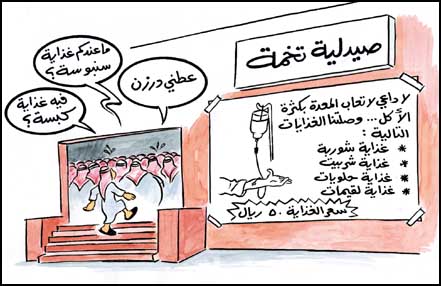 صيدلية تخمة
ماعندكم غذاية
سنبوسة؟
عطني درزن
فيه غذاية
كبسة؟
لا داعي لاتعاب المعدة بكثرة
الأكل... وصلتنا الغذايات
التالية:
* غذاية بشوربة
* غذاية شربيت
* غذاية حلويات
* غذاية لقيمات
سعر الغذاية ٥٠ ريال